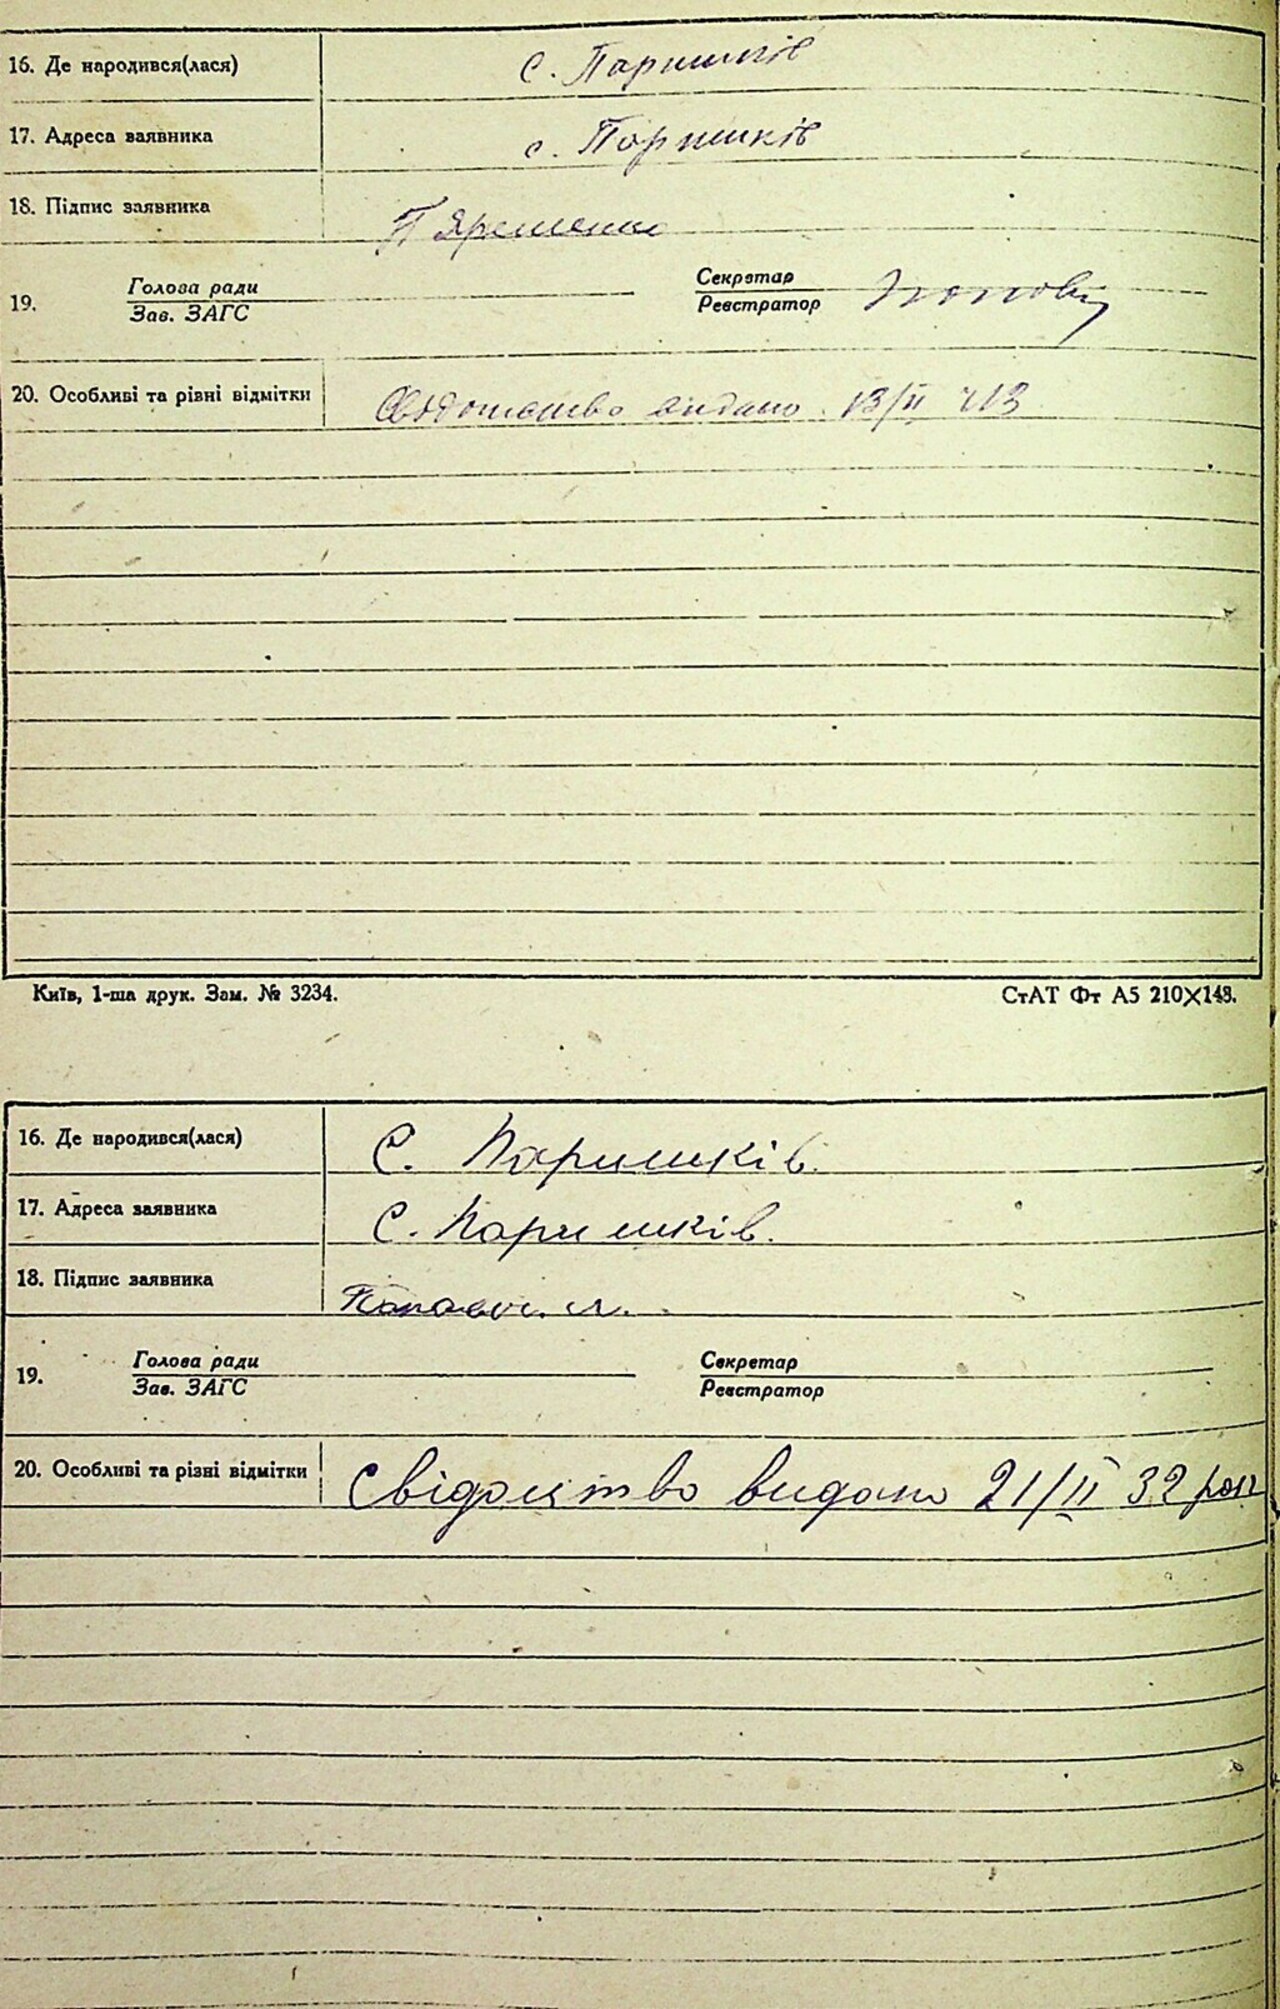 16. Де народився(лася) с. Паришків
17. Адреса заявника с. Паришків
18. Підпис заявника П Яременко
19. Голова ради Секретар
Зав. ЗАГС Реєстратор
20. Особливі та різні відмітки видано 13/II
Київ, 1-ша друк. Зам. № 3234. СтАТ Фт А5 210×148.
16. Де народився(лася) С. Паришків.
17. Адреса заявника С. Паришків.
18. Підпис заявника
19. Голова ради Секретар
Зав. ЗАГС Реєстратор
20. Особливі та різні відмітки Свідоцтво видано 21/II 32 року